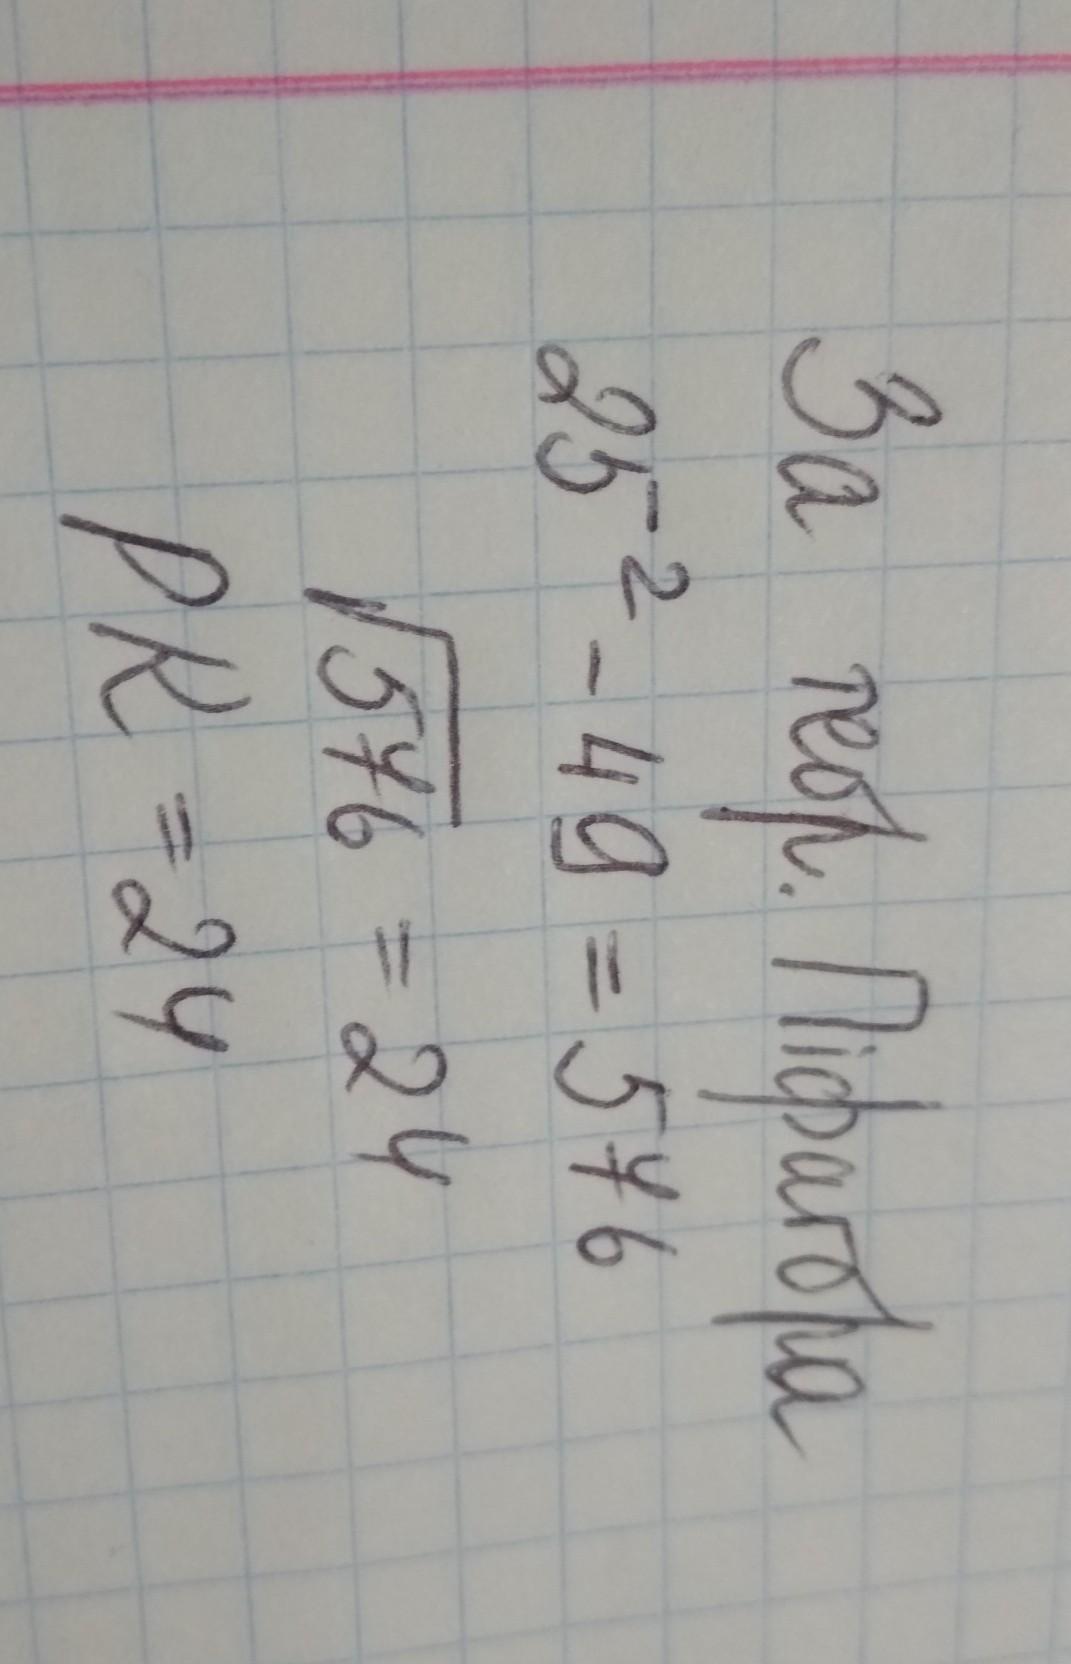 За теор. Піфагора
25² - 49 = 576
√576 = 24
PK = 24